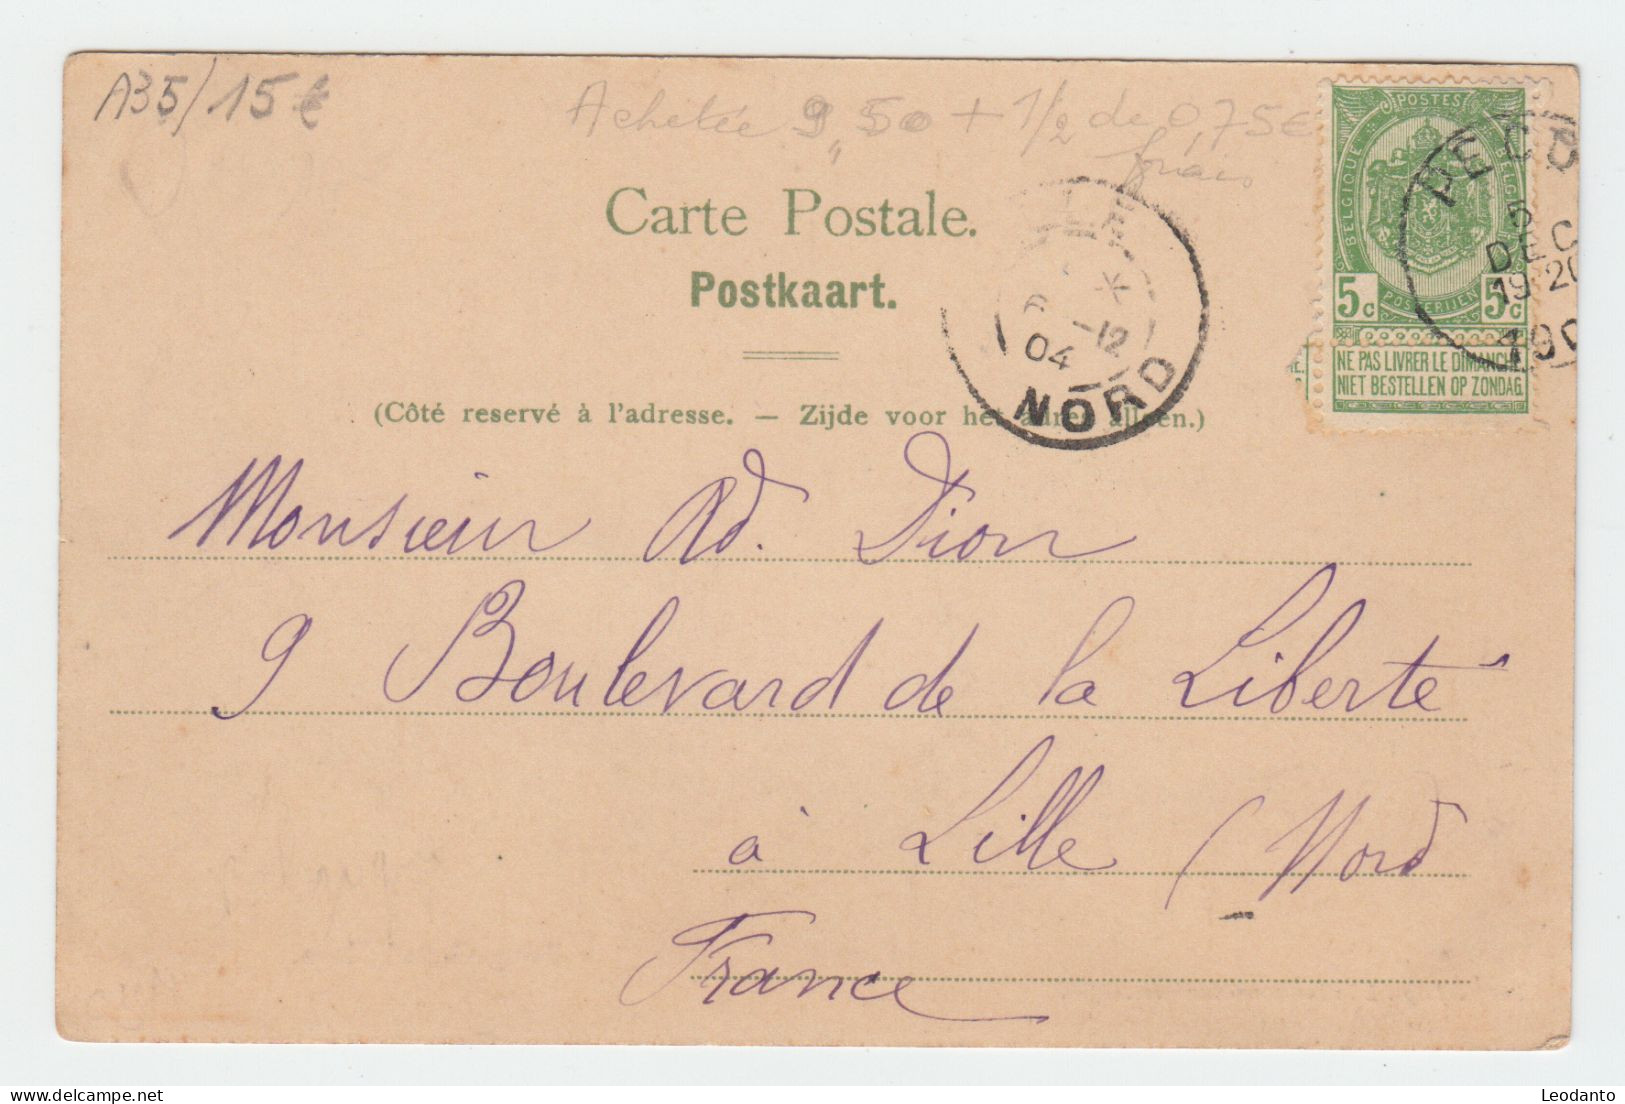 A35/15€
Achetée 9,50 + 1/2 de 0,75€
frais
POSTES
BELGIQUE
BELGIË
5c
POSTERIJEN
5c
NE PAS LIVRER LE DIMANCHE
NIET BESTELLEN OP ZONDAG
PECQ
5
DEC
19-20
190
Carte Postale.
Postkaart.
-12
04
NORD
(Côté reservé à l'adresse. — Zijde voor het adres alleen.)
Monsieur Ad. Dion
9 Boulevard de la Liberté
à Lille (Nord
France
Leodanto